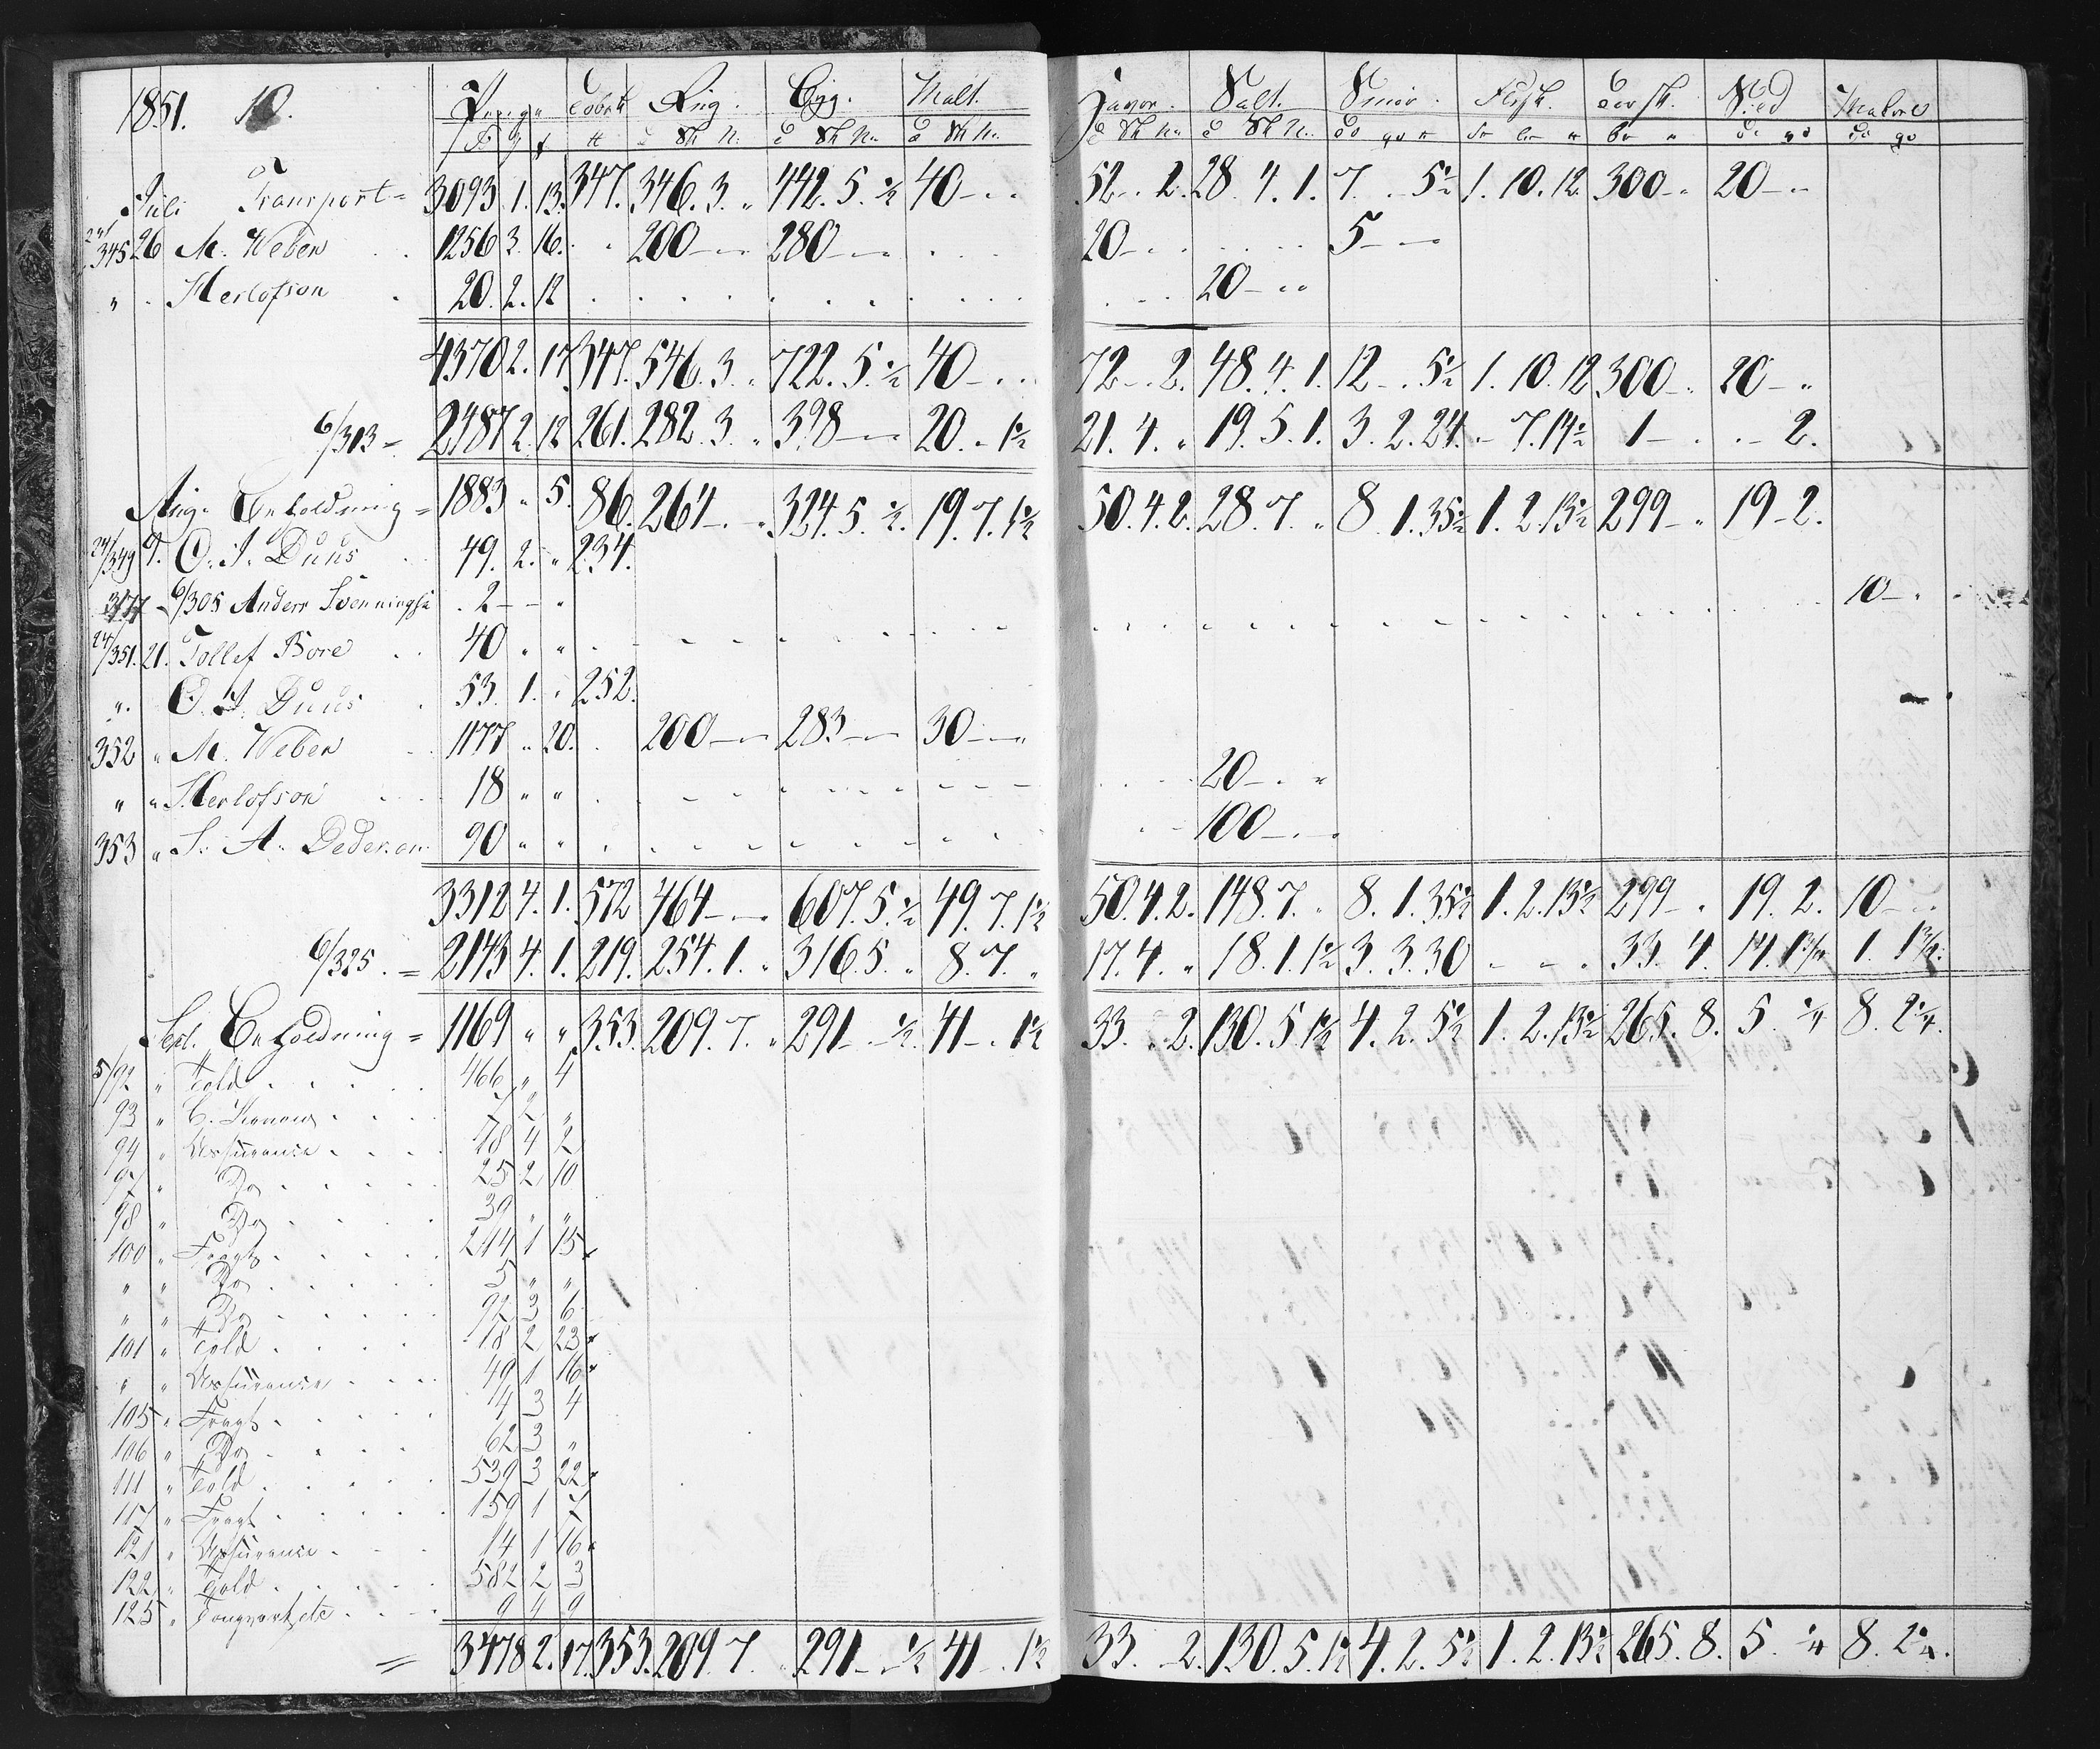 1851. 10. Penge Tobak Rug. Byg. Malt. Havre. Salt. Smör. Flesk. Törsk. Sild Makrel
Juli Transport = 3093. 1. 13. 347. 346. 3. „ 442. 5. ½ 40 — . . 52 — . 2. 28. 4. 1. 7. . 5½ 1. 10. 12. 300 — . 20 — .
24/345 26 M. Weber 1256 3. 16. 200 — „ 280 — „ 20 — . . 5 — „
„ . Herlofson 20. 2. 12 20 — . .
4370 2. 17. 347. 546. 3. „ 722. 5. ½ 40 — . . 72 — . 2. 48. 4. 1. 12 — . 5½ 1. 10. 12 300 — . 20 — „
6/313 = 2487 2. 12 261. 282. 3. „ 398 — „ 20. „ 1½ 21. 4. „ 19. 5. 1. 3. 2. 24. „ 7. 14½ 1 — . . — 2.
Aug. Beholdning = 1883 „ 5. 86. 264 — . „ 324. 5. ½. 19. 7. 1½ 50. 4. 2. 28. 7. „ 8. 1. 35½ 1. 2. 13½ 299 — „ 19 — 2.
24/349 9. O. J. Duus 49. 2. „ 234.
377 6/305 Anders Svenningsen 2 — — „ 10 — .
24/351. 21. Tollef Bore 40 „ „
„. O. J. Duus 53. 1. „ 252.
352 „ M. Weber 1177 „ 20. 200 — „ 283 — „ 30 — „
„ „ Herlofson 18 „ „ 20 — . „
353 „ S. A. Pedersen 90 „ „ 100 — . „
3312 4. 1. 572 464 — „ 607. 5. ½ 49. 7. 1½ 50. 4. 2. 148. 7. „ 8. 1. 35½ 1. 2. 13½ 299 — „ 19. 2. 10 — .
6/325. = 2143 4. 1. 219. 254. 1. „ 316 5. „ 8. 7. „ 17. 4. „ 18. 1. 1½ 3. 3. 30 — — . 33. 4. 14. 1¾ 1. 1¾.
Sept. Beholdning = 1169 „ „ 353. 209. 7. „ 291 — . ½. 41 — . 1½ 33. . 2. 130. 5. 1½ 4. 2. 5½ 1. 2. 13½ 265. 8. 5. ¼ 8. 2¼.
5/92 „ Told 466 „ 4
93 „ C. 7 2 „
94 „ Assurance 78 4 2
97 „ Do 25 2 10
98 „ Do 39 „ „
100 „ Fragt 244 1 15
„ „ Do 5 „ „
„ „ Do 92 3 6
101 „ Told 18 2 23
„ „ Assurance 49 1 16
105 „ Fragt 4 3 4
106 „ Do 62 3 „
111 „ Told 539 3 22
117 „ Fragt 159 1 7
121 „ Assurance 14 1 16
122 „ Told 582 2 3
125 „ etc 9 4 9
= 3478 2. 17. 353. 209. 7. „ 291 — . ½ 41 — . 1½ 33. — 2. 130. 5. 1½ 4. 2. 5½ 1. 2. 13½ 265. 8. 5. ¼ 8. 2¼.